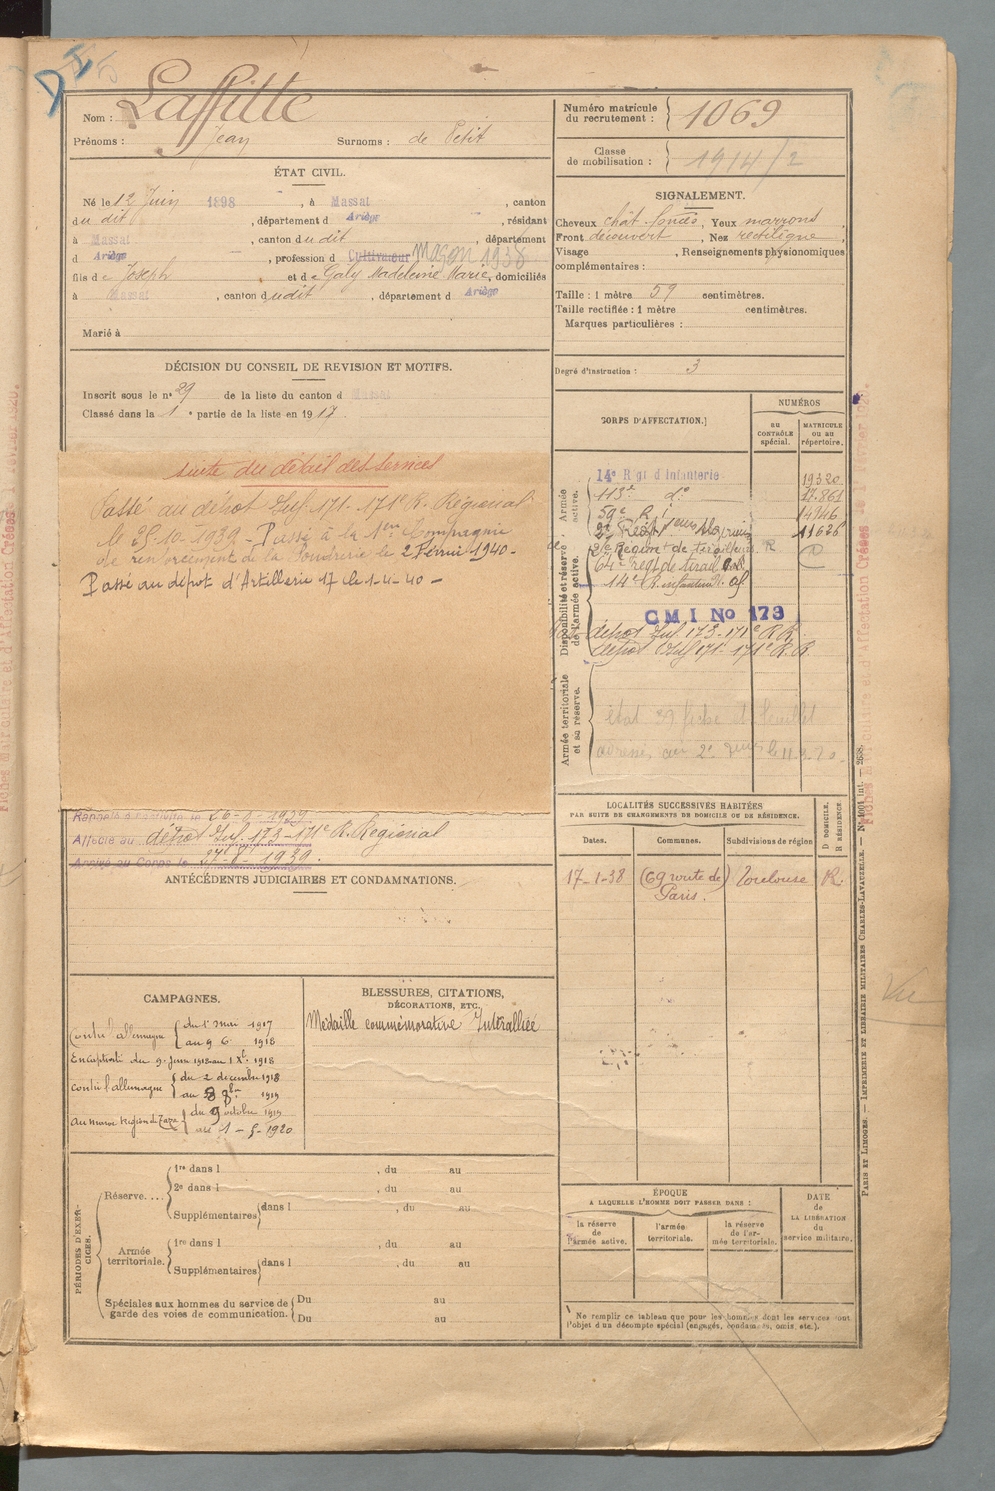 Nom : Laffitte
Prénoms : Jean Surnoms : de Petit
ÉTAT CIVIL.
Né le 12 Juin 1898, à Massat, canton
du dit, département d Ariège, résidant
à Massat, canton dudit, département
d Ariège, profession d Cultivateur Maçon 1938
fils de Joseph et de Galy Madeleine Marie, domiciliés
à Massat, canton dudit, département d Ariège
Marié à
DÉCISION DU CONSEIL DE REVISION ET MOTIFS.
Inscrit sous le n° 29 de la liste du canton d Massat
Classé dans la 1e partie de la liste en 1917.
suite du détail des services
Passé au dépôt Inf. 171. 171e R. Régional
le 25-10-1939. Passé à la 1ere Compagnie
de renforcement de la Poudrerie le 2 Février 1940-
Passé au dépôt d'Artillerie 17 le 1-4-40-
Rappelé à l'activité le 26-8-1939
Affecté au dépôt Inf 173-171e R. Régional
Arrivé au Corps le 27-8-1939.
ANTÉCÉDENTS JUDICIAIRES ET CONDAMNATIONS.
CAMPAGNES.
Contre l'allemagne du 1er mai 1917
au 9 6 1918
En captivité du 9 Juin 1918 au 1 Xbre 1918
Contre l'allemagne du 2 décembre 1918
au 8 8bre 1919
Au maroc Région d Taza du 9 octobre 1919
au 1-5-1920
BLESSURES, CITATIONS,
DÉCORATIONS, ETC.
Médaille commémorative Interalliée
PÉRIODES D'EXERCICES.
Réserve....
1re dans l , du au
2e dans l , du au
Supplémentaires dans l , du au
Armée territoriale.
1re dans l , du au
Supplémentaires dans l , du au
Spéciales aux hommes du service de garde des voies de communication.
Du au
Du au
Numéro matricule du recrutement : 1069
Classe de mobilisation : 1914/2
SIGNALEMENT.
Cheveux chât. foncés, Yeux marrons
Front découvert, Nez rectiligne,
Visage , Renseignements physionomiques
complémentaires :
Taille : 1 mètre 59 centimètres.
Taille rectifiée : 1 mètre centimètres.
Marques particulières :
Degré d'instruction : 3
CORPS D'AFFECTATION.
NUMÉROS
au CONTRÔLE spécial.
MATRICULE ou au répertoire.
Armée active.
14e Rgt d'Infanterie 19320
113e do 17.861
59e R. I 14746
2e Régt 11626
Disponibilité et réserve de l'armée active.
Région de tirailleurs R
64e régt de tirail
14e R. infanterie
CMI No 173
dépôt Inf 173-171e R.R.
dépôt Inf 171-171e R.R.
Armée territoriale et sa réserve.
état fiche et feuillet
adressés au 2e
LOCALITÉS SUCCESSIVES HABITÉES
PAR SUITE DE CHANGEMENTS DE DOMICILE OU DE RÉSIDENCE.
Dates. Communes. Subdivisions de région
D DOMICILE. R RÉSIDENCE.
17-1-38 (69 route de Paris. Toulouse R.
ÉPOQUE
A LAQUELLE L'HOMME DOIT PASSER DANS :
la réserve de l'armée active.
l'armée territoriale.
la réserve de l'armée territoriale.
DATE de LA LIBÉRATION du service militaire.
Ne remplir ce tableau que pour les hommes dont les services font
l'objet d'un décompte spécial (engagés, condamnés, omis, etc.).
PARIS ET LIMOGES. — IMPRIMERIE ET LIBRAIRIE MILITAIRES CHARLES-LAVAUZELLE.
Vu